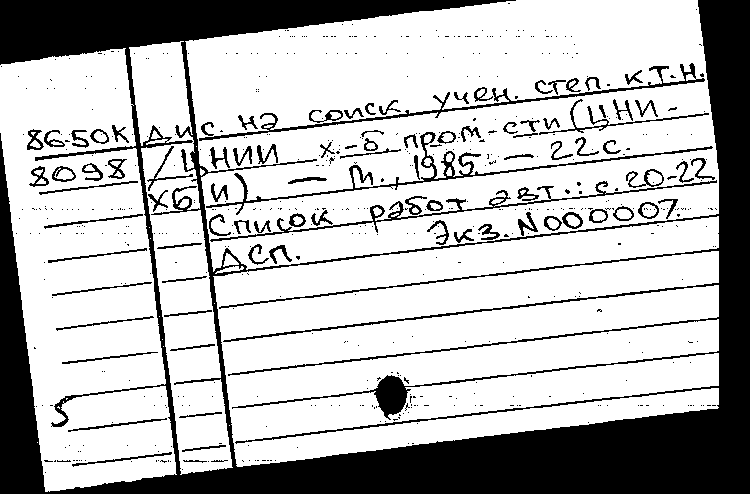 86-50К дис. на соиск. учен. степ. к.т.н.
8098 /ЦНИИ х.-б. пром-сти (ЦНИ-
ХБИ). — М., 1985. — 22 с.
Список работ авт.: с. 20-22
ДСП. Экз. N000007.
5